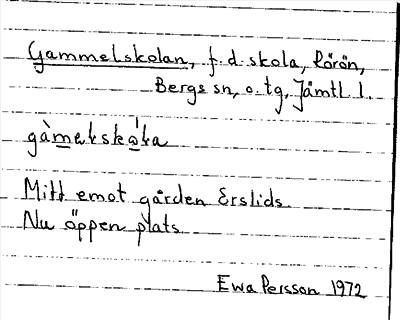 Gammelskolan, f.d. skola, Rörön,
Bergs sn, o. tg, Jämtl. l.
gàmelskòla
Mitt emot gården Erslids.
Nu öppen plats.
Ewa Persson 1972